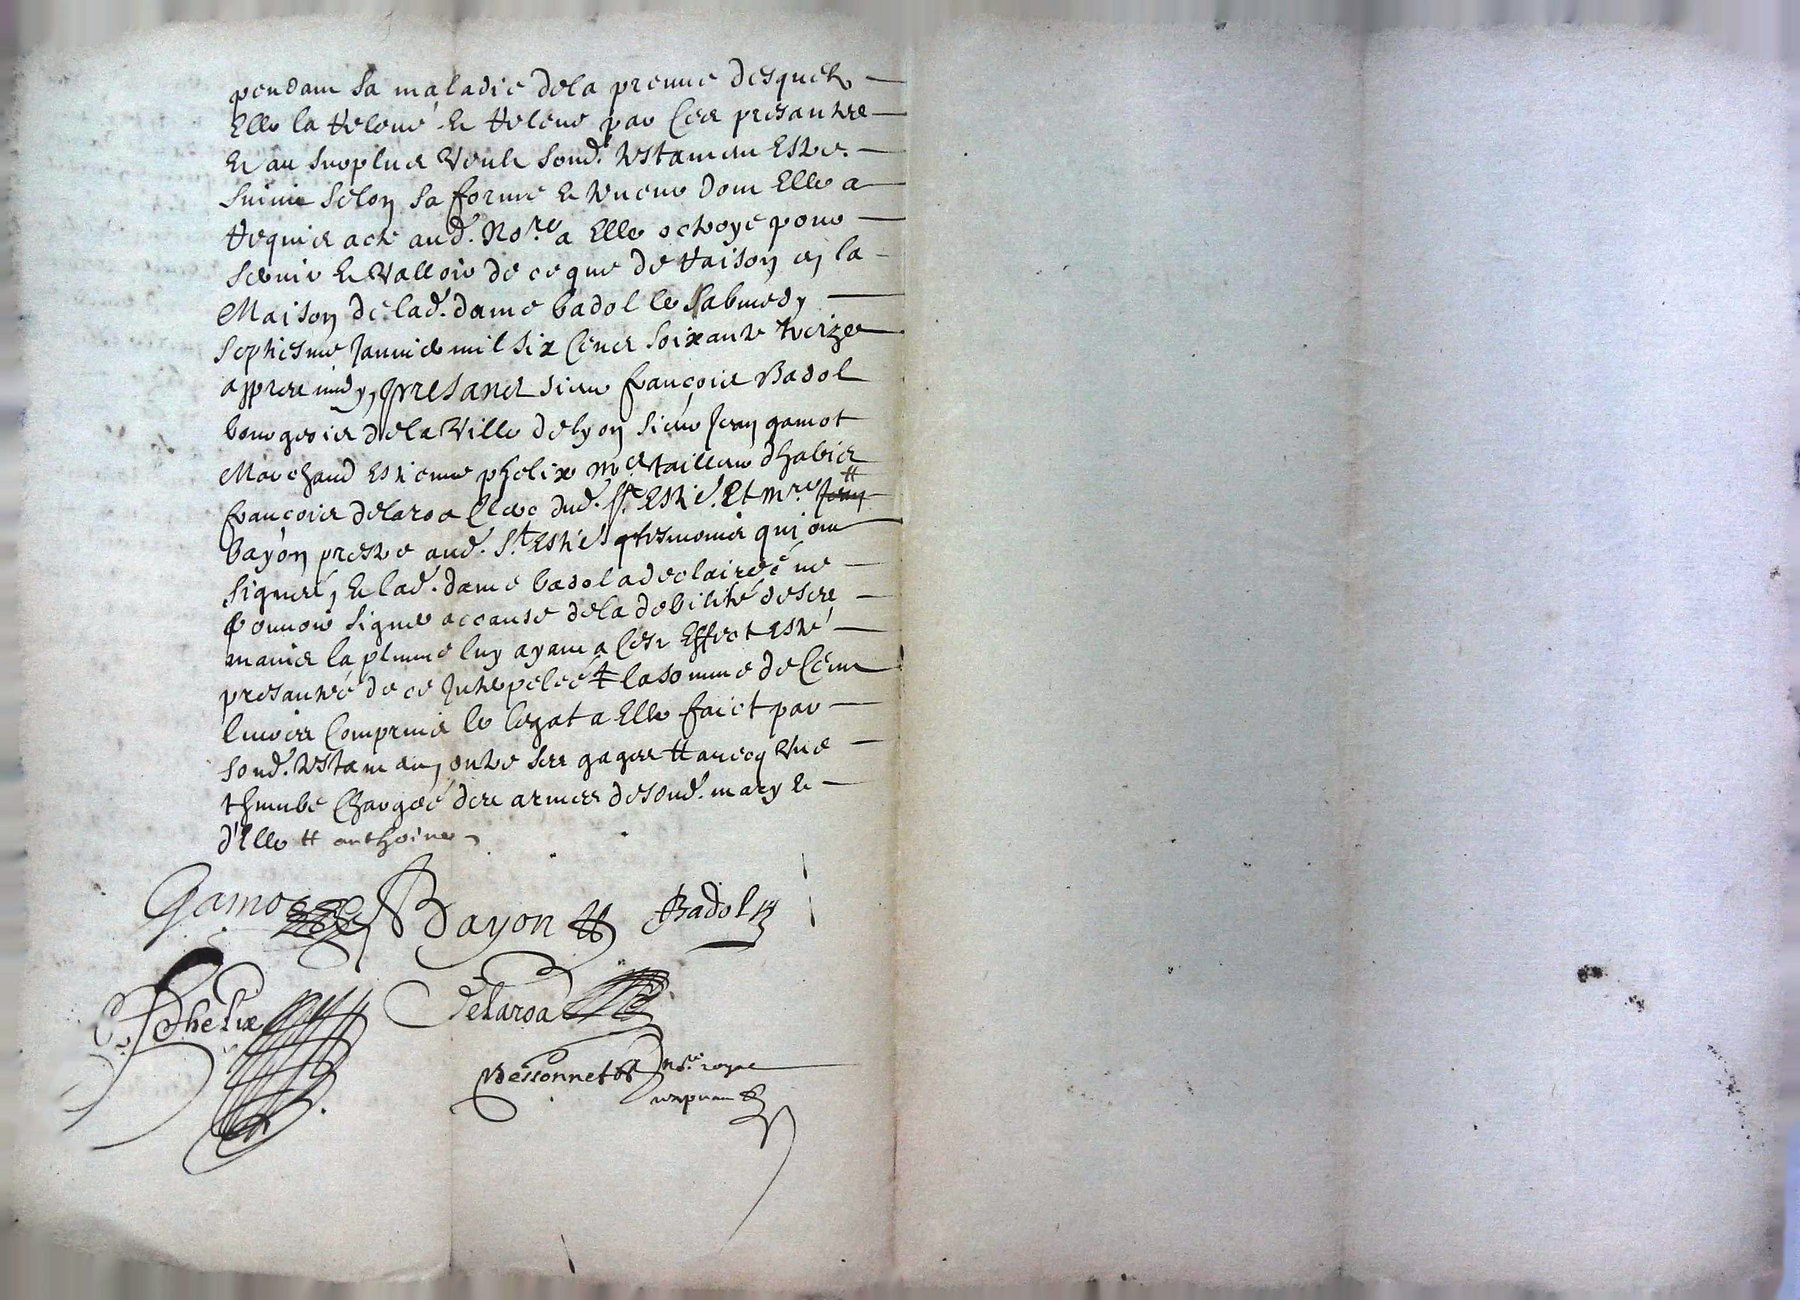 pendant sa maladie de la preuve desquels
Elle la releve Et releve par Ces presantes
Et au surplus Veult sond. testament Estre
suivi selon sa forme Et teneur dont Elle a
requis acte aud. No.re a Elle octroyé pour
servir Et Valloir de ce que de raison en la
Maison de lad. dame badol le sabmedy
septiesme Janvier mil six Cents soixante treize
appres midy, presants sieur françois Badol
bourgeois de la Ville de lyon sieur Jean gamot
Marchand Estienne phelix m.e tailleur dhabits
françois delaroa Clerc dud. St. Esti.e Et m.re Jean #
bayon prestre aud. St Esti.e tesmoins qui ont
signéz, Et lad. dame badol a declairée ne
pouvoir signer a cause de la debilité de ses
mains la plume luy ayant a Cest Effect esté
presantée de ce Interpelée # la somme de Cent
livres Compris le legat a Elle faict par
sond. testament, outre ses gages # avecq Une
thimbe Chargée des armes de sond. mary Et
d'Elle # anthoine
Gamot Bayon Badol
E. Phelix Delaroa
Bessonnet No.re royal